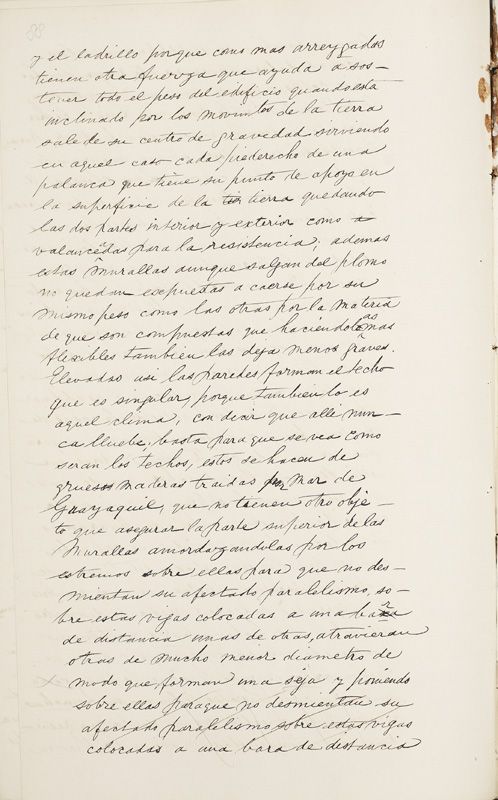 88
y el ladrillo porque como mas arreygados
tienen otra fuerza que ayuda à sos-
tener todo el peso del edificio quando esta
inclinado por los movimtos de la tierra
sale de su centro de gravedad sirviendo
en aquel caso cada piederecho de una
palanca que tiene su punto de apoyo en
la superficie de la tierra quedando
las dos partes interior y exterior como
valancêadas para la resistencia; ademas
estas murallas aunque salgan del plomo
no quedan expuestas a caerse por su
mismo peso como las otras por la materia
de que son compuestas que haciendolas mas
flexibles tambien las deja menos graves.
Elevadas asi las paredes forman el techo
que es singular, porque tambien lo es
aquel clima, con dicir que alli nun-
ca lluebe, basta para que se vea como
seran los techos, estos se hacen de
gruesos maderas traidas por mar de
Guayaquil, que no tienen otro obje-
to que asegurar la parte superior de las
murallas amordazandolas por los
estremos sobre ellas para que no des-
mientan su afectado paralelismo, so-
bre estas vigas colocadas a una bara
de distancia unas de otras, atraviezan
otras de mucho menor diametro de
modo que forman una seja y poniendo
sobre ellas paraque no desmientan su
afectado paralelismo sobre estas vigas
colocadas a una bara de distancia